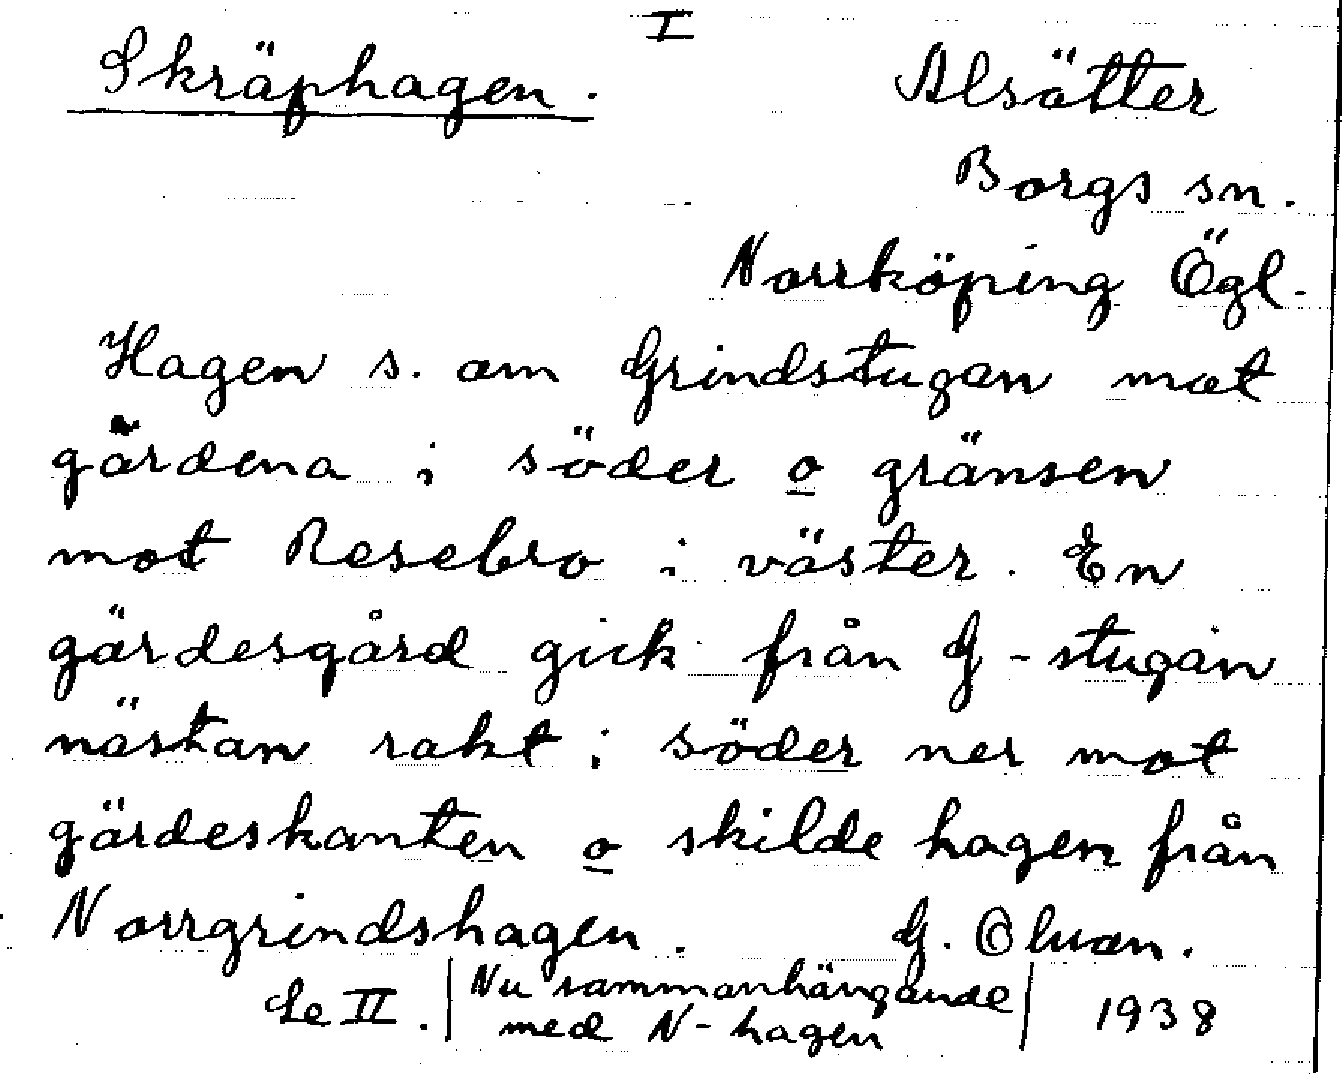 I
Skräphagen. Alsätter
Borgs sn.
Norrköping Ögl.
Hagen s. om Grindstugan mot
gärdena i söder o gränsen
mot Resebro i väster. En
gärdesgård gick från G-stugan
nästan rakt i söder ner mot
gärdeskanten o skilde hagen från
Norrgrindshagen. G. Olsson.
Se II. | Nu sammanhängande | 1938
med N-hagen